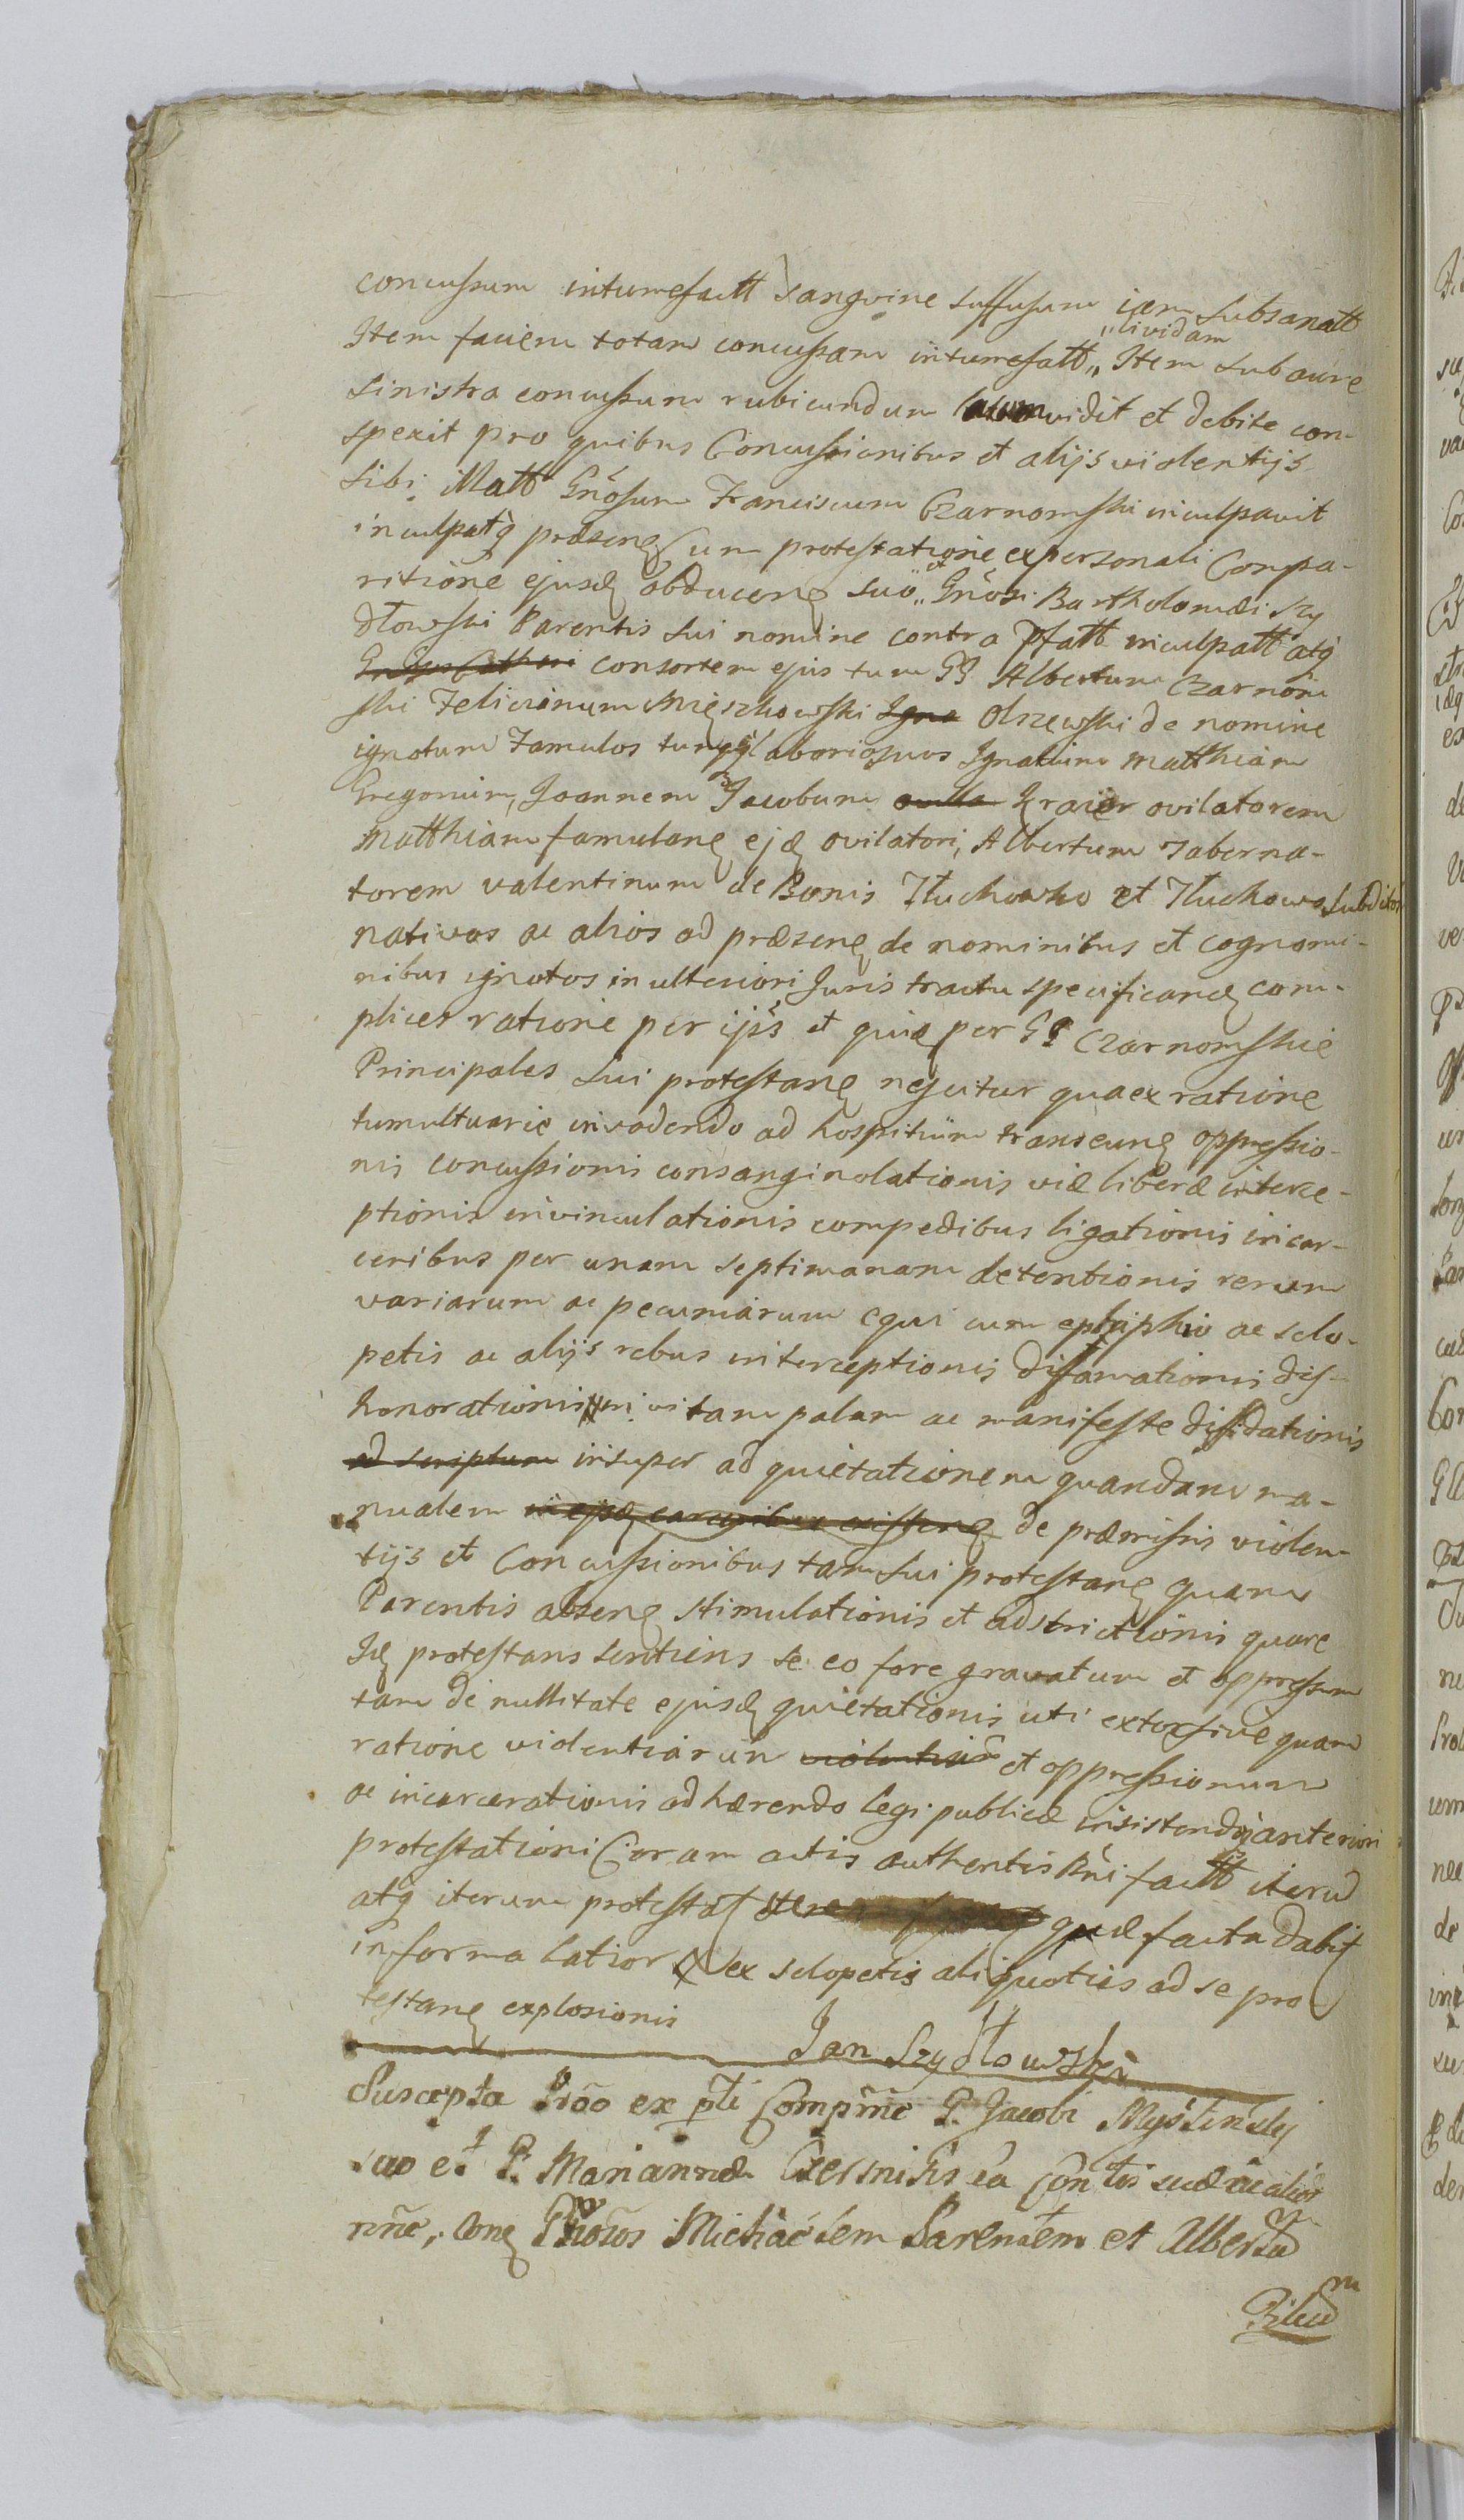 concussum intumefactt sangvine suffusum jam subsanatt
Item faciem totam concussam intumefatt „lividam„ Item sub aure
sinistra concussum rubicundum locum vidit et debite con-
spexit pro quibus Concussionibus et alijs violentijs
sibi illatt Gnõsum Franciscum Czarnomski inculpavit
inculpatq præsenq Cum protestatione ex personali Compa-
ritione ejusq obducenq suo „et„ Gnõsi Bartholomæi Szy
dłowski Parentis sui nomine contra Pfatt inculpatt atq
consortem ejus tum GG Albertum Czarnom
ski Felicianum Mięszkowski Olszewski de nomine
ignotum Famulos tumq laboriosuos Ignatium Matthiam
Gregorium, Joannem Jacobum Kraier ovilatorem
Matthiam famulanq ejq ovilatori, Albertum Taberna-
torem valentinum de Bonis Tłuchowko et Tłuchowo subditos
nativos ac alios ad præsenq de nominibus et cognomi-
nibus ignotos in ulteriori Juris tractu specificanq com-
plices ratione per ipsos et quiq per GG Czarnomskie
Principales sui protestanq nescitur qua ex ratione
tumultuarie invadendo ad hospitium transeunq oppressio-
nis concussionis consanginolationis viæ liberæ interce-
ptionis invinculationis compedibus ligationis in car-
ceribus per unam septimanam detentionis rerum
variarum ac pecuniarum equi cum ephiphio ac sclo-
petis ac alijs rebus interceptionis diffamationis dis-
honorationis in vitam palam ac manifeste diffidationis
ad scriptum insuper ad quietationem quandam ma-
nualem in ejsq carceribus existenq de præmissis violen-
tijs et Concussionibus tam sui protestanq quam
Parentis absenq stimulationis et adstrictionis quare
Idq protestans sentiens se eo fore gravatum et oppressum
tam de nullitate ejusq quietationis uti extorsive quam
ratione violentiarum violentiar et oppressionum
ac incarcerationis adhærendo legi publicæ insistendoq anteriori
protestationi Coram actis authentis Rni factt iterũ
atq iterum protestat quæ facta dabit
in forma latior ex sclopetis aliquoties ad se pro
testanq explosionis
Jan Szydłowski
Suscepta Prõo ex pti Compñe G. Jacobi Myśliński
suo et G. Mariannæ Cōntis suæ ac alior
nñe, Conq Gnosos Michaelem Parentem et Albertũ